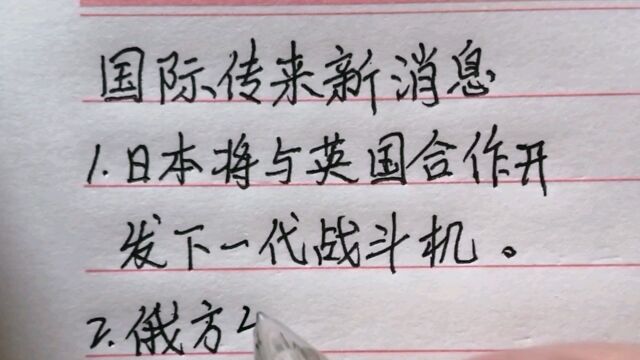 国际传来新消息
1.日本将与英国合作开
发下一代战斗机。
2.俄方